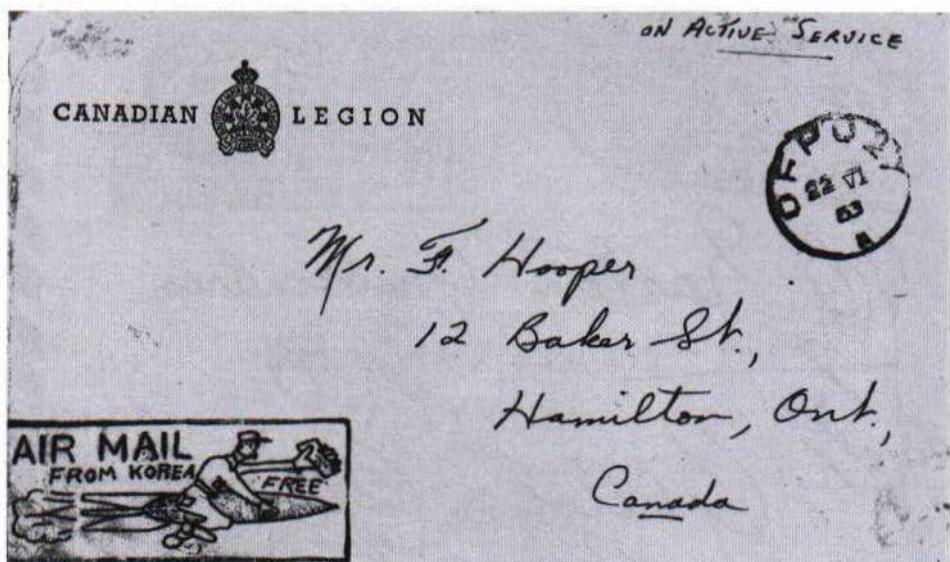 ON ACTIVE SERVICE
CANADIAN LEGION
22 VI
53
Mr. F. Hooper
12 Baker St.,
Hamilton, Ont.,
Canada
AIR MAIL
FROM KOREA
FREE